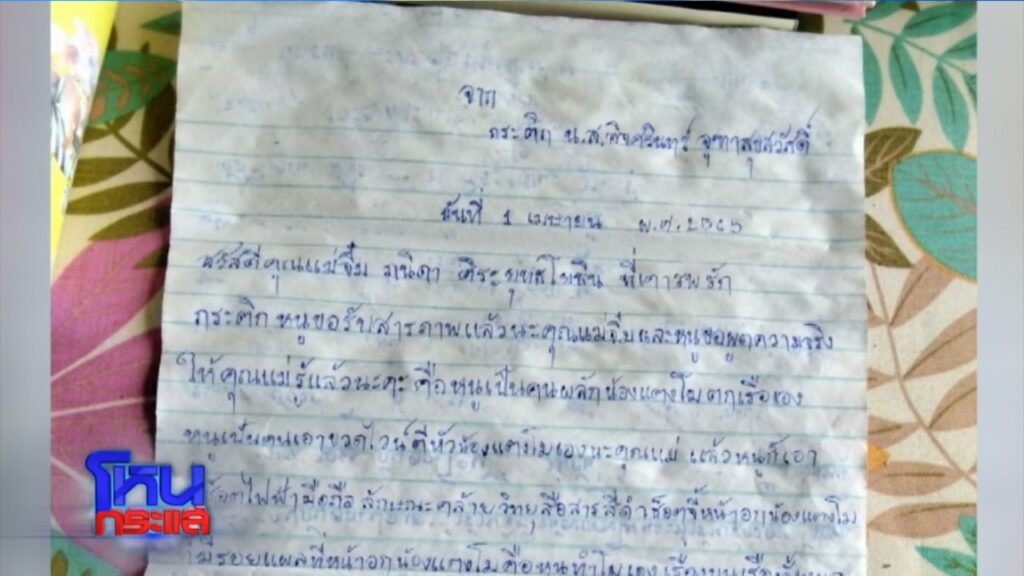 จาก
กระติก น.ส.อิจศรินทร์ จุฑาสุขสวัสดิ์
วันที่ 1 เมษายน พ.ศ. 2565
สวัสดีคุณแม่จิ๋ม ภนิดา ศิระยุทธโยธิน ที่เคารพรัก
กระติก หนูขอรับสารภาพแล้วนะคุณแม่จิ๋มและหนูขอพูดความจริง
ให้คุณแม่รู้แล้วนะคะ คือหนูเป็นคนผลักน้องแตงโมตกเรือเอง
หนูเป็นคนเอาขวดไวน์ตีหัวน้องแตงโมเองนะคุณแม่ แล้วหนูก็เอา
ช็อตไฟฟ้ามือถือ ลักษณะคล้ายวิทยุสื่อสารสีดำช็อตจี้หน้าอกน้องแตงโม
ที่มีรอยแผลที่หน้าอกน้องแตงโมคือหนูทำไมเอง เรื่องบนเรือ
โหนกระแส